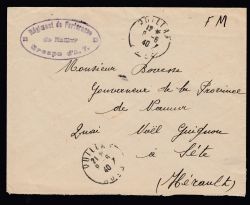 Régiment de Forteresse
de Namur
Groupe
F M
Monsieur Bovesse
Gouverneur de la Province
de Namur
Quai Noël Guignon
à Sète
(Hérault)
40
40